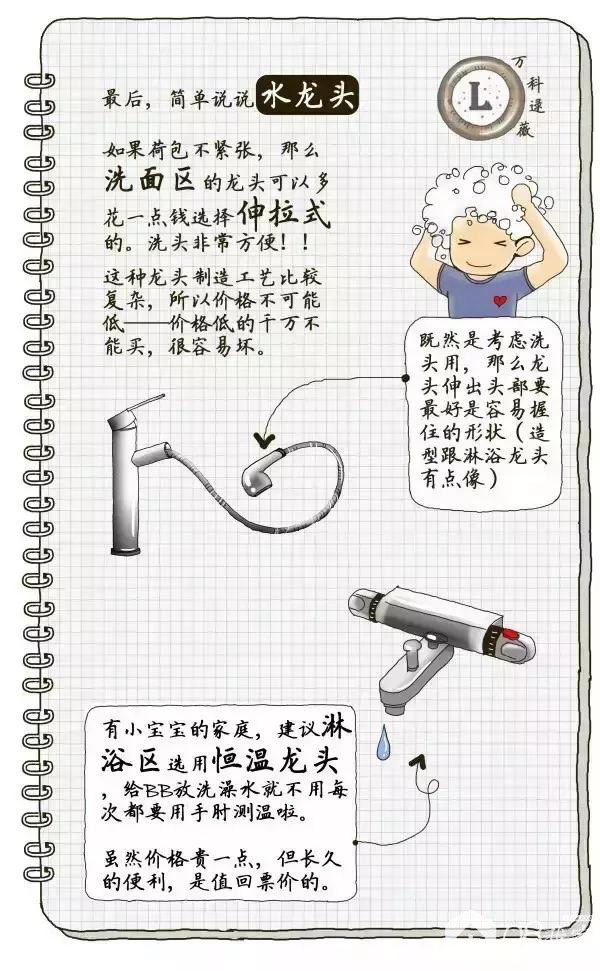 最后，简单说说水龙头
L
万科逯薇
如果荷包不紧张，那么
洗面区的龙头可以多
花一点钱选择伸拉式
的。洗头非常方便！！
这种龙头制造工艺比较
复杂，所以价格不可能
低——价格低的千万不
能买，很容易坏。
既然是考虑洗
头用，那么龙
头伸出头部要
最好是容易握
住的形状（造
型跟淋浴龙头
有点像）
有小宝宝的家庭，建议淋
浴区选用恒温龙头
，给BB放洗澡水就不用每
次都要用手肘测温啦。
虽然价格贵一点，但长久
的便利，是值回票价的。